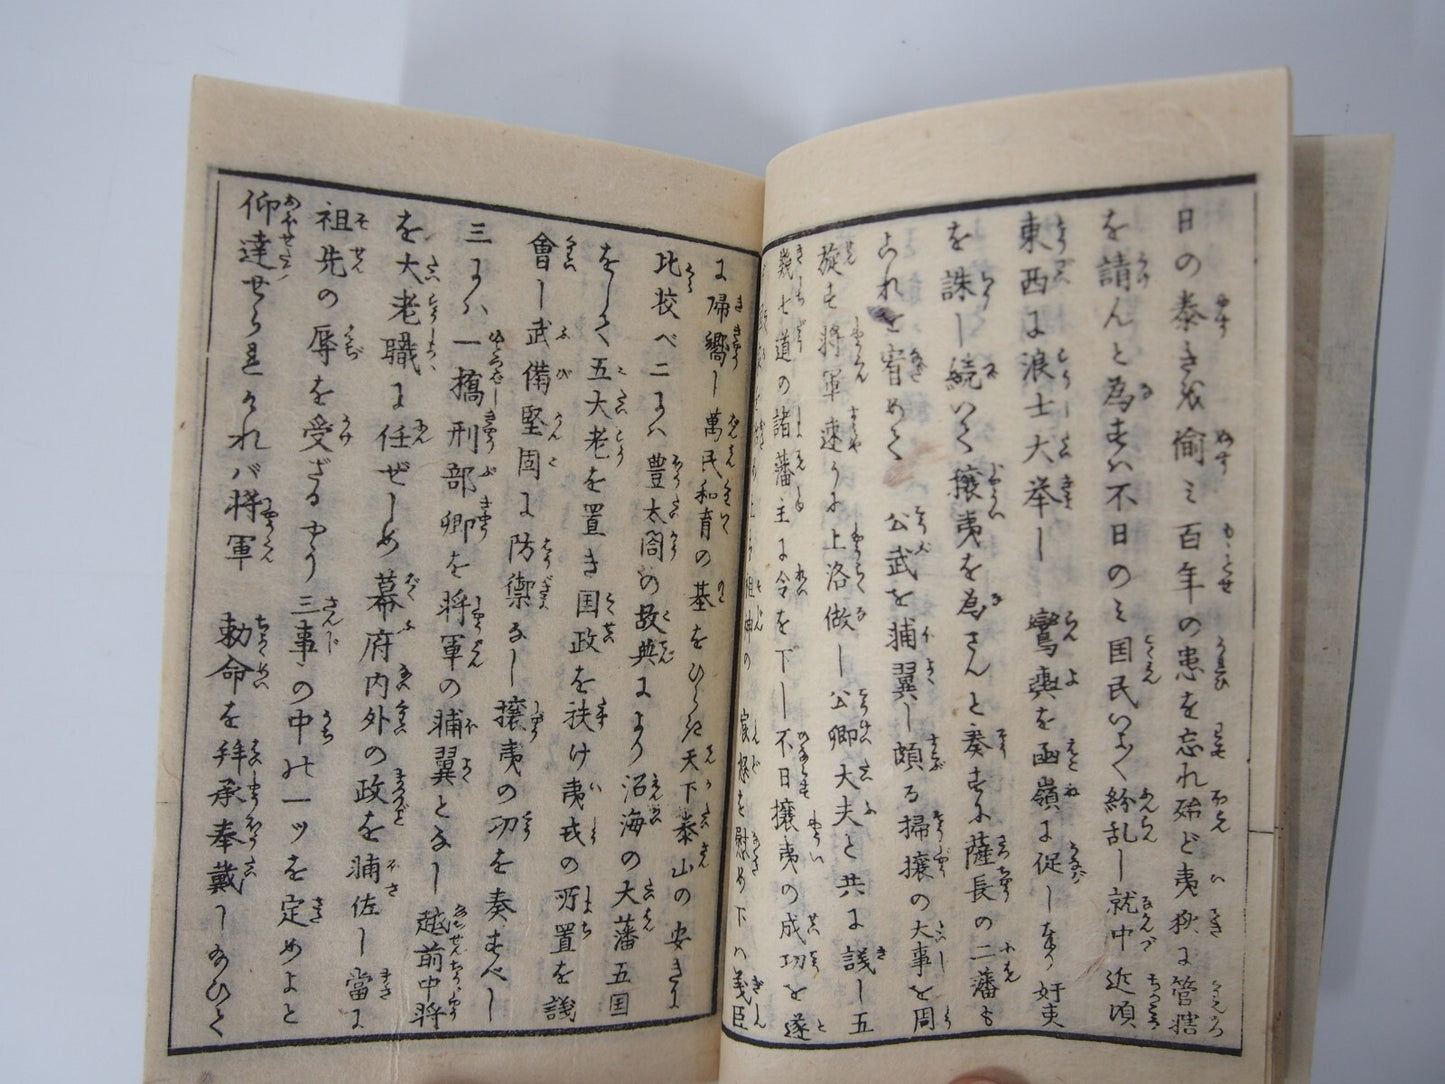 日の泰き我偷ミ百年の患を忘れ殆ど夷狄に管轄
を請んと為きハ不日のミ国民いよく紛乱し就中近頃
東西に浪士大挙し 鸞輿を函嶺に促し奉り奸吏
を誅し続いて攘夷を為さんと奏するに薩長の二藩も
これを宥めて 公武を補翼し頗る掃攘の大事を周
旋す将軍速かに上洛做し公卿大夫と共に議し五
畿七道の諸藩主に令を下し不日攘夷の成功を遂
祖神の 宸襟を慰め下ハ義臣
に帰嚮し萬民和育の基をひらき天下泰山の安きに
比校べ二にハ豊太閤の故典により沿海の大藩五国
をして五大老を置き国政を扶け夷戎の所置を議
會し武備堅固に防禦なし攘夷の功を奏すべし
三にハ一橋刑部卿を将軍の補翼となし越前中将
を大老職に任ぜしめ幕府内外の政を補佐し當に
祖先の辱を受ざるやう三事の中に一ツを定めよと
仰達せられけれバ将軍 勅命を拜承奉戴し給ひて